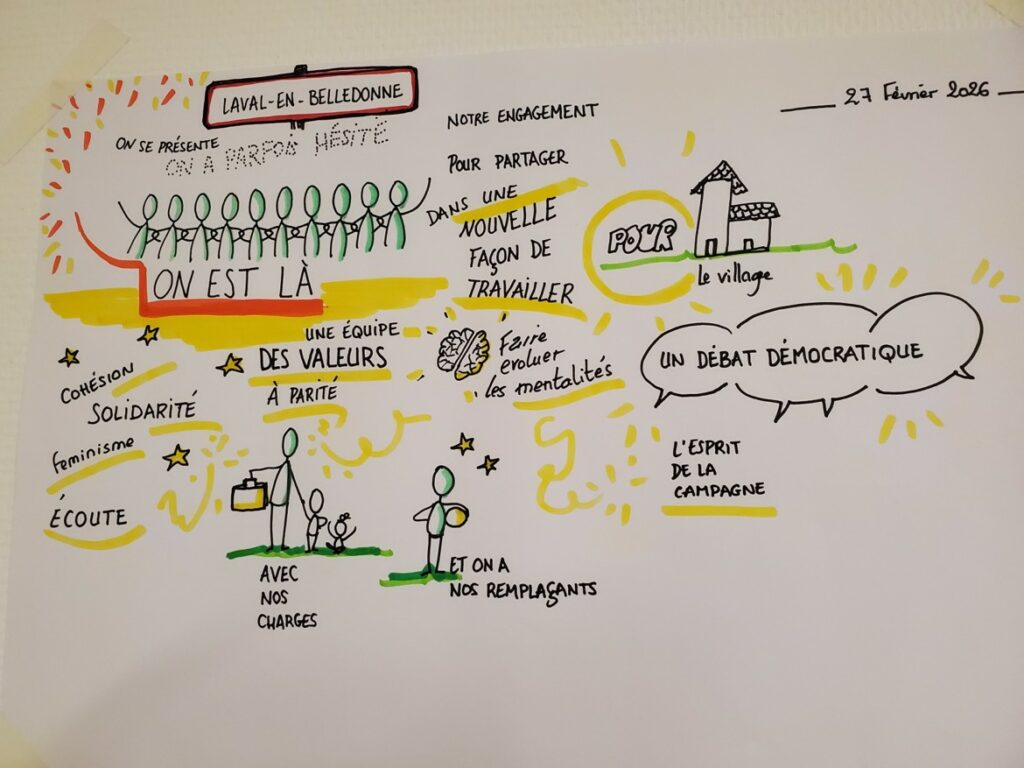 LAVAL-EN-BELLEDONNE
27 Février 2026
ON SE PRÉSENTE
ON A PARFOIS HÉSITÉ
ON EST LÀ
NOTRE ENGAGEMENT
POUR PARTAGER
DANS UNE
NOUVELLE
FAÇON DE
TRAVAILLER
POUR
Le village
UNE ÉQUIPE
DES VALEURS
À PARITÉ
COHÉSION
SOLIDARITÉ
feminisme
ÉCOUTE
Faire
evoluer
les mentalités
UN DÉBAT DÉMOCRATIQUE
L'ESPRIT
DE LA
CAMPAGNE
AVEC
NOS
CHARGES
ET ON A
NOS REMPLAÇANTS